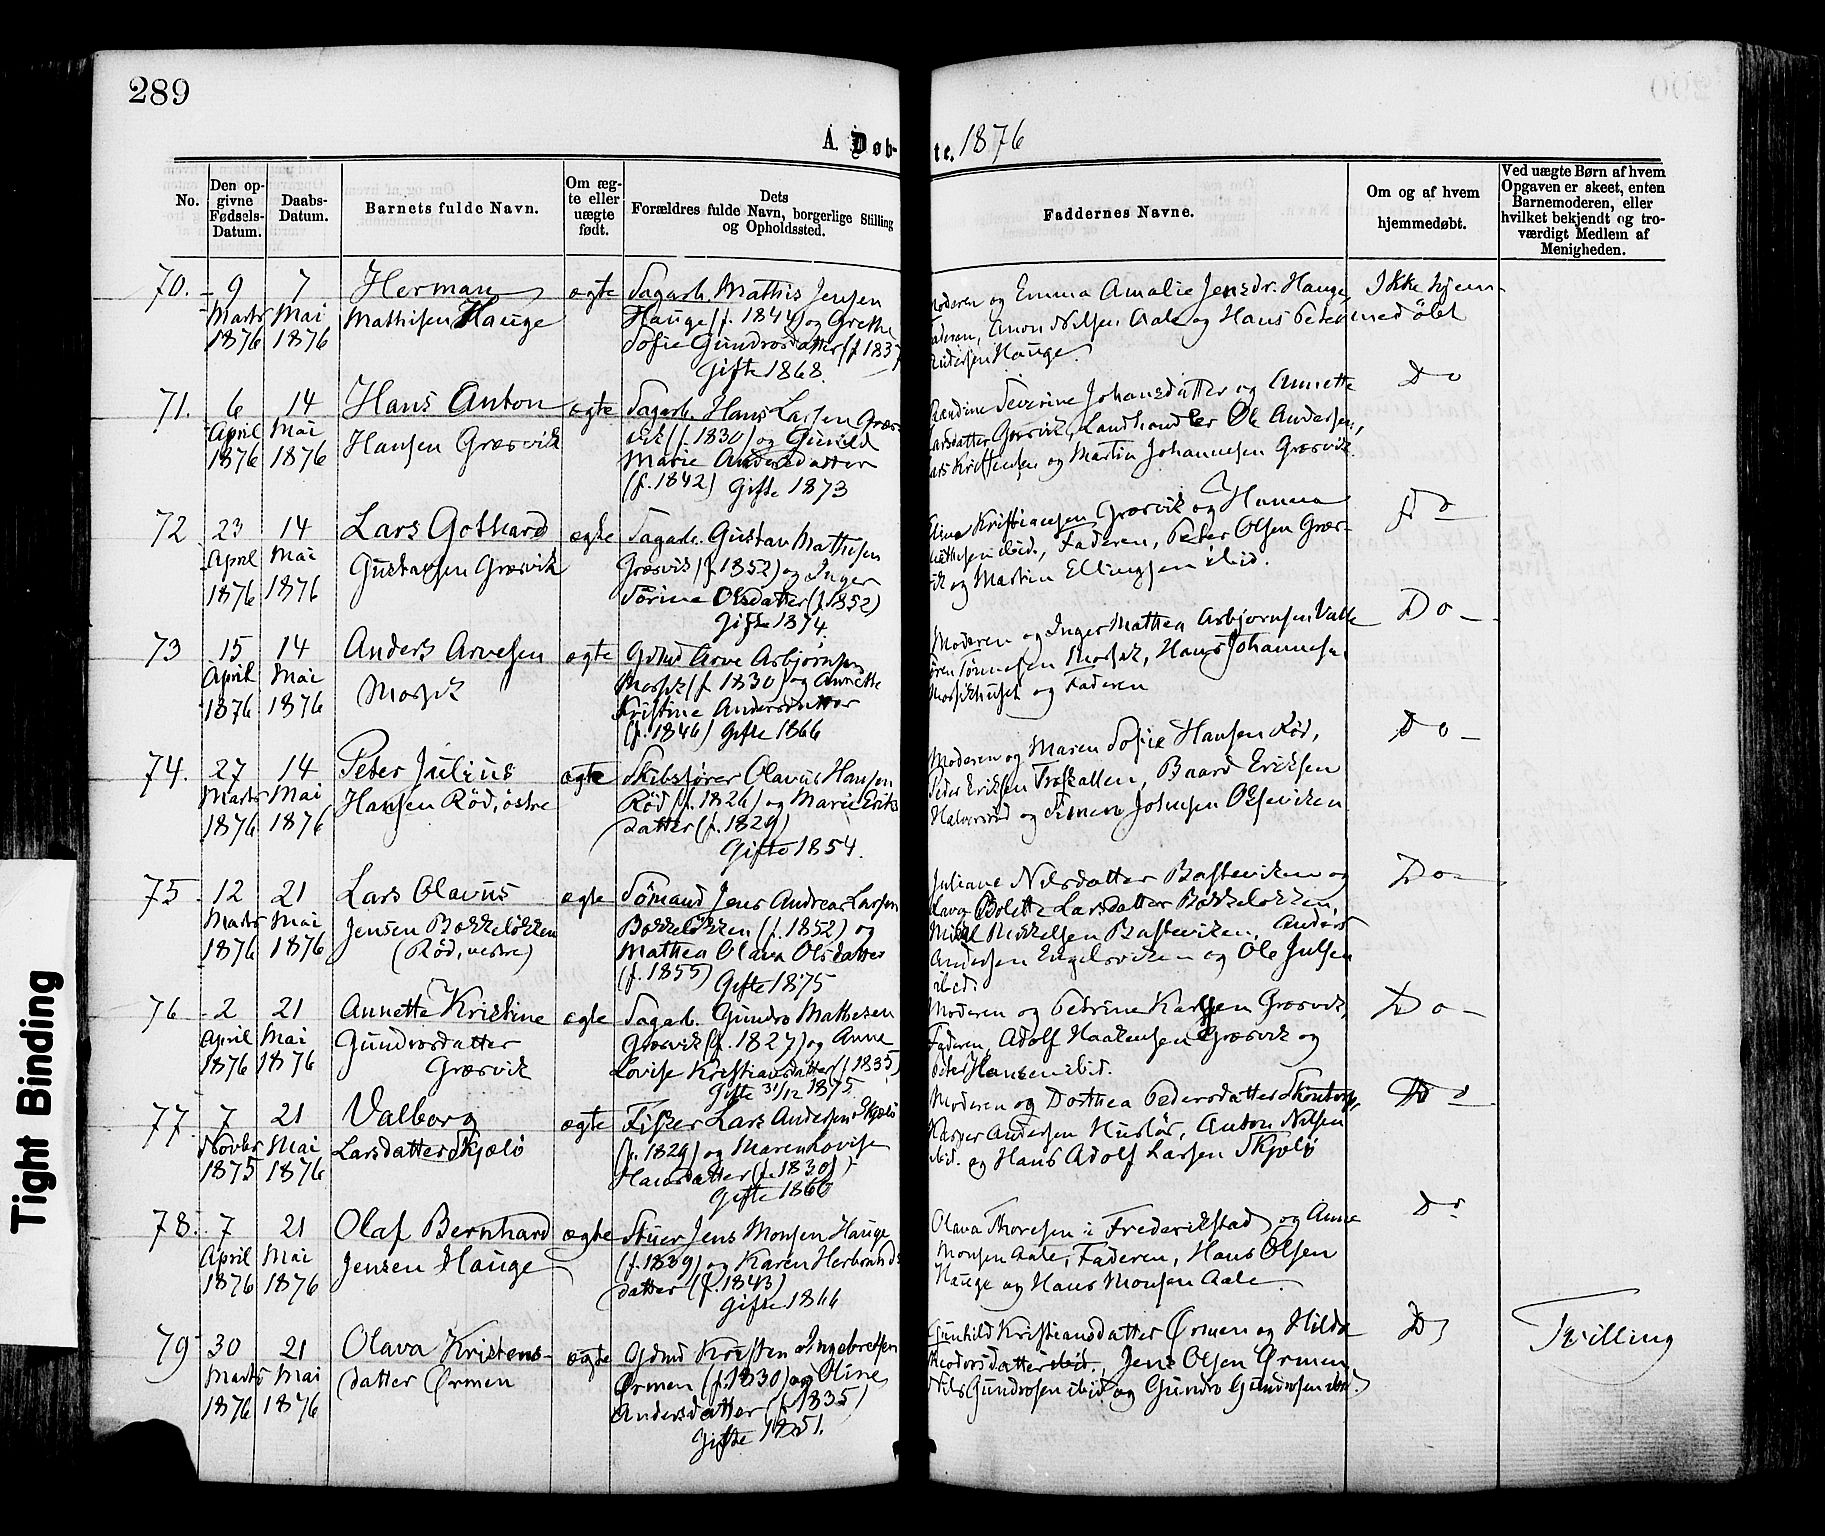 289
A. Døb-
te. 1876
No.
Den op-
givne
Fødsels-
Datum.
Daabs-
Datum.
Barnets fulde Navn.
Om æg-
te eller
uægte
født.
Dets
Forældres fulde Navn, borgerlige Stilling
og Opholdssted.
Faddernes Navne.
Om og af hvem
hjemmedøbt.
Ved uægte Børn af hvem
Opgaven er skeet, enten
Barnemoderen, eller
hvilket bekjendt og tro-
værdigt Medlem af
Menigheden.
70. 9 Marts 1876
7 Mai 1876
Herman
Mathisen Hauge
ægte
Sagarb. Mathis Jensen
Hauge (f. 1844) og Grethe
Sofie Gundrosdatter (f 1837
Gifte 1868.
Moderen og Emma Amalie Jensdr. Hauge,
Faderen, Amon Nilsen Aale og Hans Peter
Andersen Hauge.
Ikke hjem-
med ölet
71. 6 April 1876
14 Mai 1876
Hans Anton
Hansen Græsvik
ægte
Sagarb. Hans Larsen Græs-
vik (f. 1830) og Gunild
Marie Andersdatter
(f. 1842) Gifte 1873
Severine Johansdatter og Annette
Larsdatter Græsvik, Landhandler Ole Andersen,
Lars Kristensen og Martin Johannesen Græsvik.
Do
72 23 April 1876
14 Mai 1876
Lars Gothard
Gustavsen Græsvik
ægte
Sagarb. Gustav Mathisen
Græsvik (f. 1852) og Inger
Sörine Olsdatter (f. 1852)
Gifte 1874.
Elina Kristiansen Græsvik og Hanna
Mathisen ibid., Faderen, Peter Olsen Græs-
vik og Martin Ellingsen ibid.
Do
73 15 April 1876
14 Mai 1876
Anders Arvesen
Mosvik
ægte
Gdmd Arve Asbjørnsen
(f. 1830) og Annette
Kristine Andersdatter
(f. 1846) Gifte 1866
Moderen og Inger Mathea Asbjörnsen Valle
Sören Tönnesen Hans Johannesen
og Faderen
Do
74. 27 Marts 1876
14 Mai 1876
Peter Julius
Hansen Rød, østre
ægte
Skibsfører Olavus Hansen
Rød (f. 1826) og Marie Eriks
datter (f. 1829)
Gifte 1854.
Moderen og Maren Sofie Hansen Rød,
Peder Eriksen Baard Eriksen
og Simen Johnsen Oksviken
Do
75 12 Marts 1876
21 Mai 1876
Lars Olavus
Jensen Bakkeløkken
(Rød, vestre)
ægte
Sømand Jens Andreas Larsen
Bakkeløkken (f. 1852) og
Mathea Olava Olsdatter
(f. 1855) Gifte 1875
Juliane Nilsdatter Basteviken og
Lava Bolette Larsdatter Bakkeløkken,
Mikkelsen Basteviken, Anders
Andersen Engelsviken og Ole Julsen
ibid.
Do
76 2 April 1876
21 Mai 1876
Annette Kristine
Gundrosdatter
Græsvik
ægte
Sagarb. Gundro Mathesen
Græsvik (f. 1827) og Anne
Lovise Kristiansdatter (f 1835)
Gifte 31/12 1875.
Moderen og Petrine Karlsen Græsvik,
Faderen, Adolf Haakensen Græsvik og
Peter Hansen ibid.
Do
77. 7 Novbr 1875
21 Mai 1876
Valborg
Larsdatter Skjælö
ægte
Fisker Lars Andersen Skjælö
(f. 1829) og Maren Lovise
Hansdatter (f. 1830)
Gifte 1860
Moderen og Dorthea Pedersdatter
Kasper Andersen Huslös, Anton Nilsen
ibid. og Hans Adolf Larsen Skjælö
Do
78. 7 April 1876
21 Mai 1876
Olaf Bernhard
Jensen Hauge
ægte
Stuer Jens Monsen Hauge
(f. 1839) og Karen Herbrands
datter (f. 1843)
Gifte 1866
Olava Thoresen i Frederikstad og Anne
Monsen Aale, Faderen, Hans Olsen
Hauge og Hans Monsen Aale
Do
79 30 Marts 1876
21 Mai 1876
Olava Kristens-
datter Ørmen
ægte
Gdmd Kristen Ingebretsen
Ørmen (f. 1830) og Oline
Andersdatter (f 1835)
Gifte 1851.
Gunhild Kristiansdatter Ørmen og Hilda
Theodorsdatter ibid., Jens Olsen Ørmen,
Nils Gundrosen ibid og Gundro Gundrosen ibid.
Do
Tvilling
Tight Binding